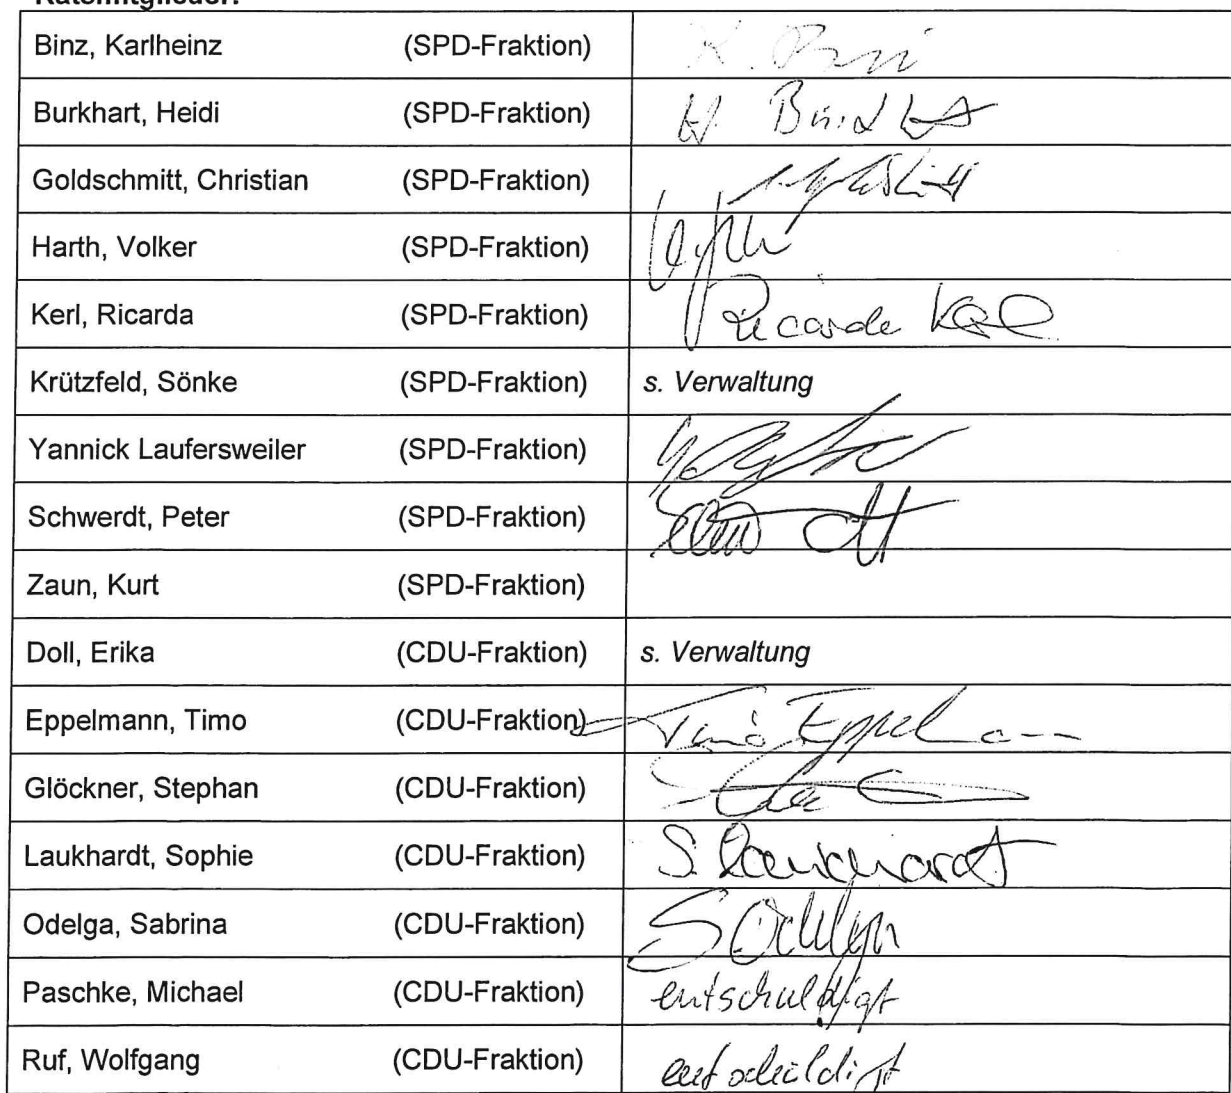 Ratsmitglieder:
Binz, Karlheinz (SPD-Fraktion) K. Binz
Burkhart, Heidi (SPD-Fraktion) H. Burkha
Goldschmitt, Christian (SPD-Fraktion)
Harth, Volker (SPD-Fraktion)
Kerl, Ricarda (SPD-Fraktion) Ricarda Kerl
Krützfeld, Sönke (SPD-Fraktion) s. Verwaltung
Yannick Laufersweiler (SPD-Fraktion)
Schwerdt, Peter (SPD-Fraktion)
Zaun, Kurt (SPD-Fraktion)
Doll, Erika (CDU-Fraktion) s. Verwaltung
Eppelmann, Timo (CDU-Fraktion) Timo Eppelmann
Glöckner, Stephan (CDU-Fraktion)
Laukhardt, Sophie (CDU-Fraktion) S. Laukhardt
Odelga, Sabrina (CDU-Fraktion) S Odelga
Paschke, Michael (CDU-Fraktion) entschuldigt
Ruf, Wolfgang (CDU-Fraktion) entschuldigt